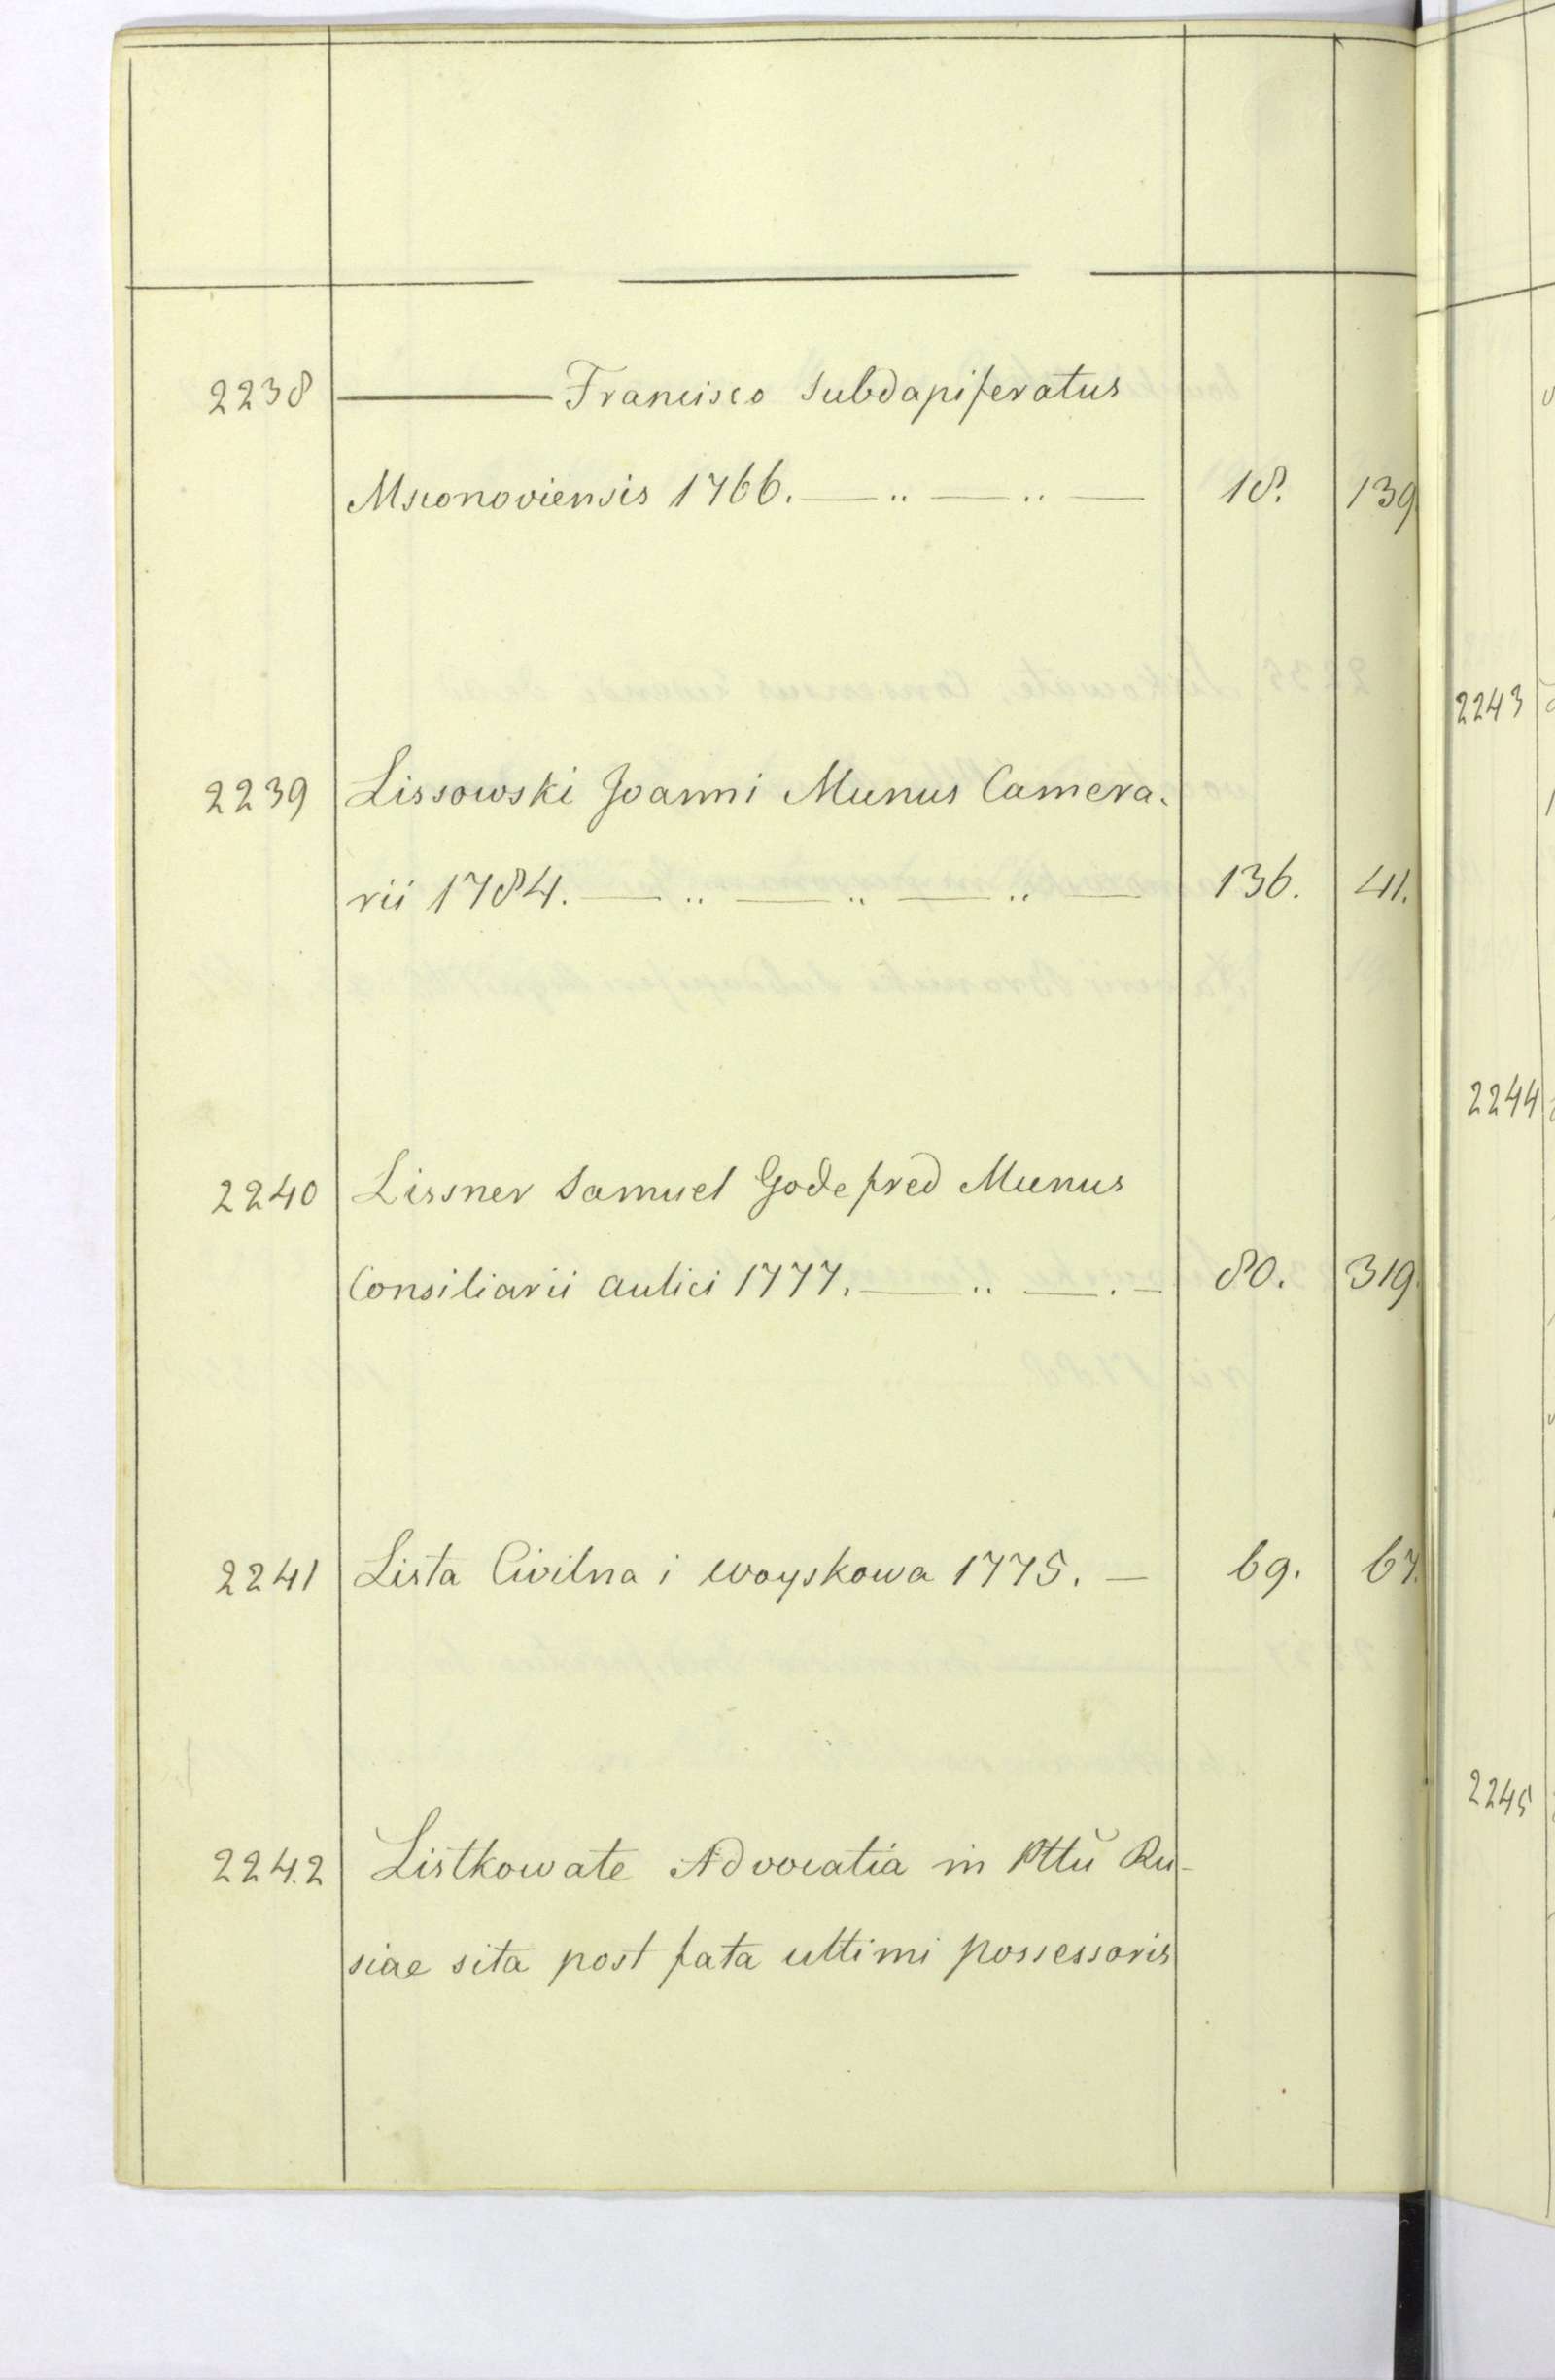 2238 ——— Francisco Subdapiferatus
Msconoviensis 1766. — .. — .. — 18. 139.
2239 Lissowski Joanni Munus Camera-
rii 1784. — .. — .. — .. — 136. 41.
2240 Lissner Samuel Godefred Munus
Consiliarii Aulici 1777. — .. — . — 80. 319.
2241 Lista Civilna i woyskowa 1775. — 69. 67.
2242 Listkowate Advocatia in Pttŭ Ru-
siae sita post fata ultimi possessoris
2243
2244
2245